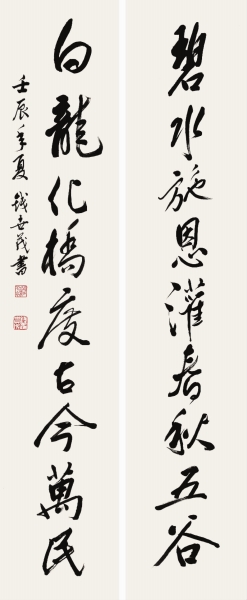 碧水施恩灌春秋五谷
白龍化橋度古今萬民
壬辰年夏钱世茂書